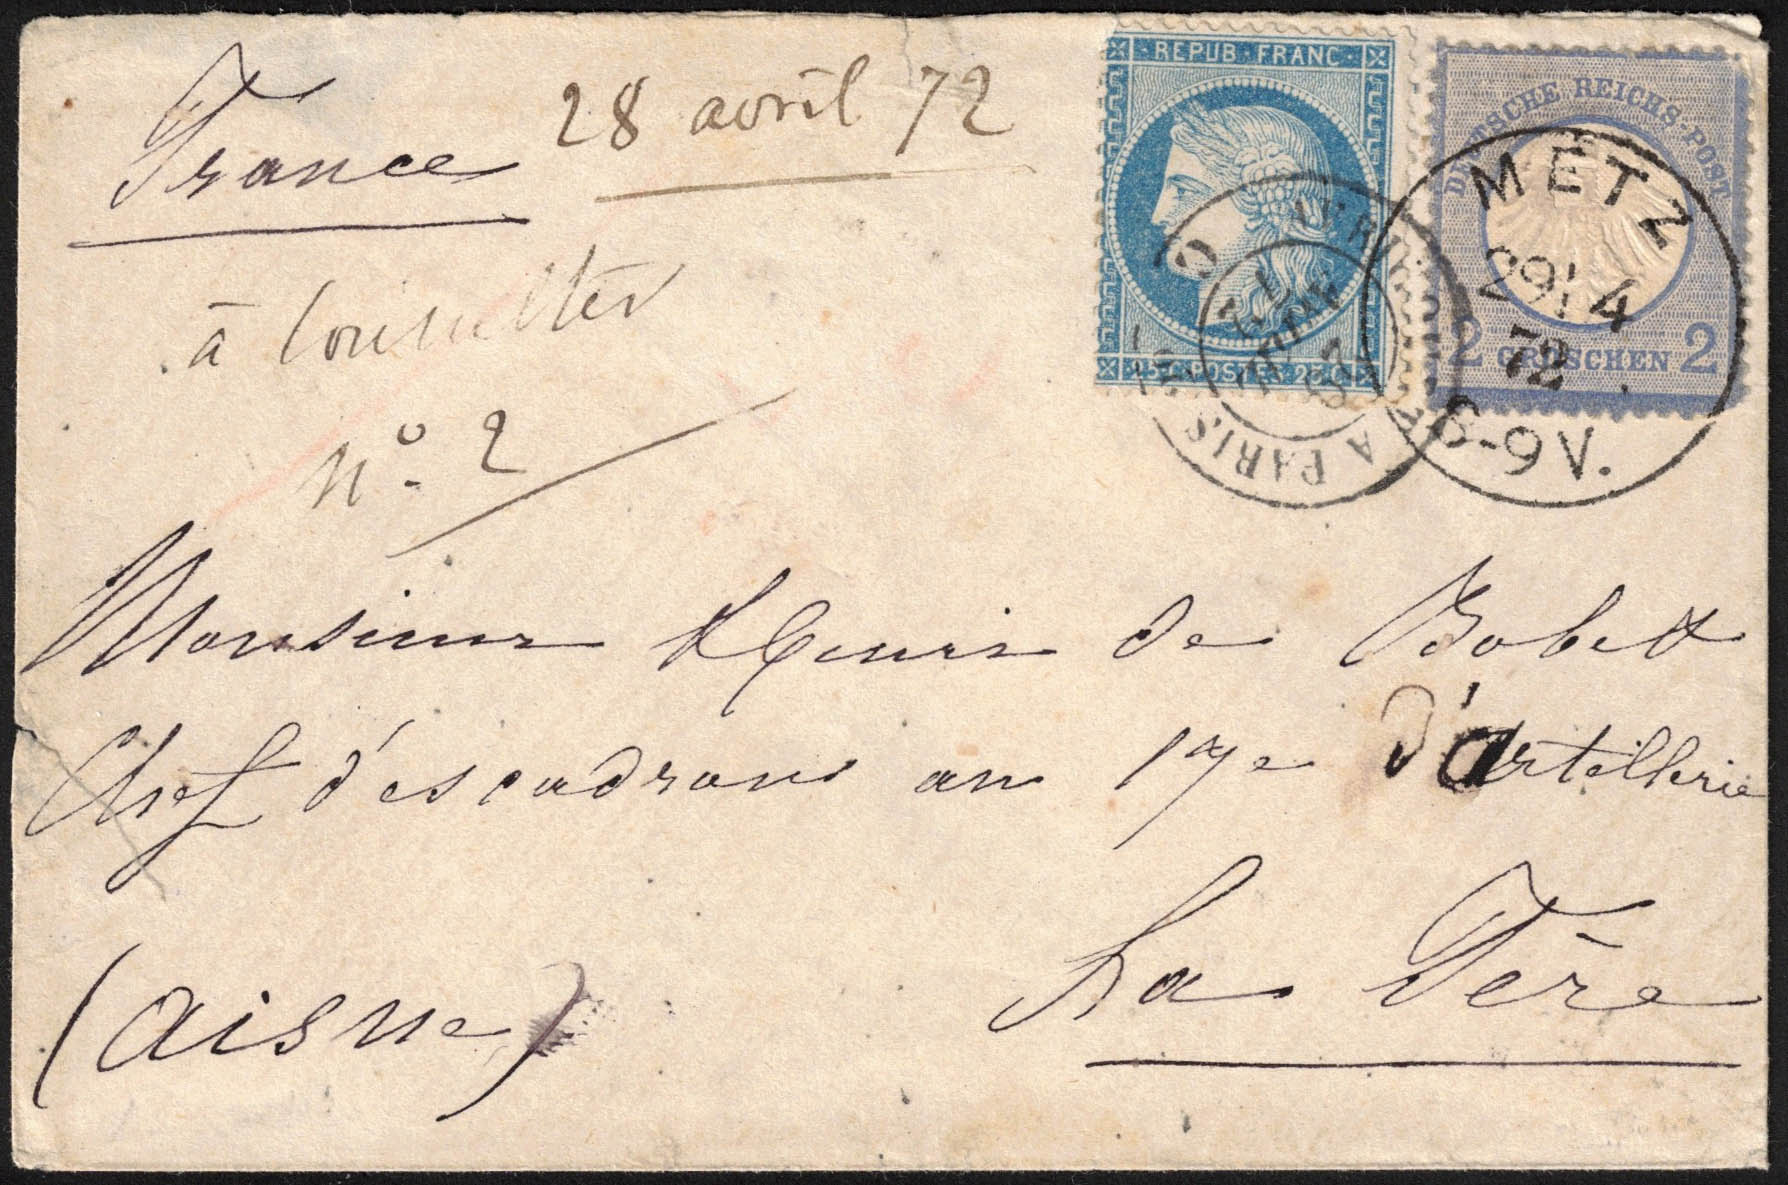 France
28 avril 72
à consulter
No. 2
REPUB FRANC
25 C POSTES 25 C
DEUTSCHE REICHS-POST
2 GROSCHEN 2
METZ
29 4
72
8-9V.
A PARIS
30
AVRIL
72
Monsieur Henri de Bobet
Chef d'escadrons au 17e d'artillerie
La Fère
(Aisne)